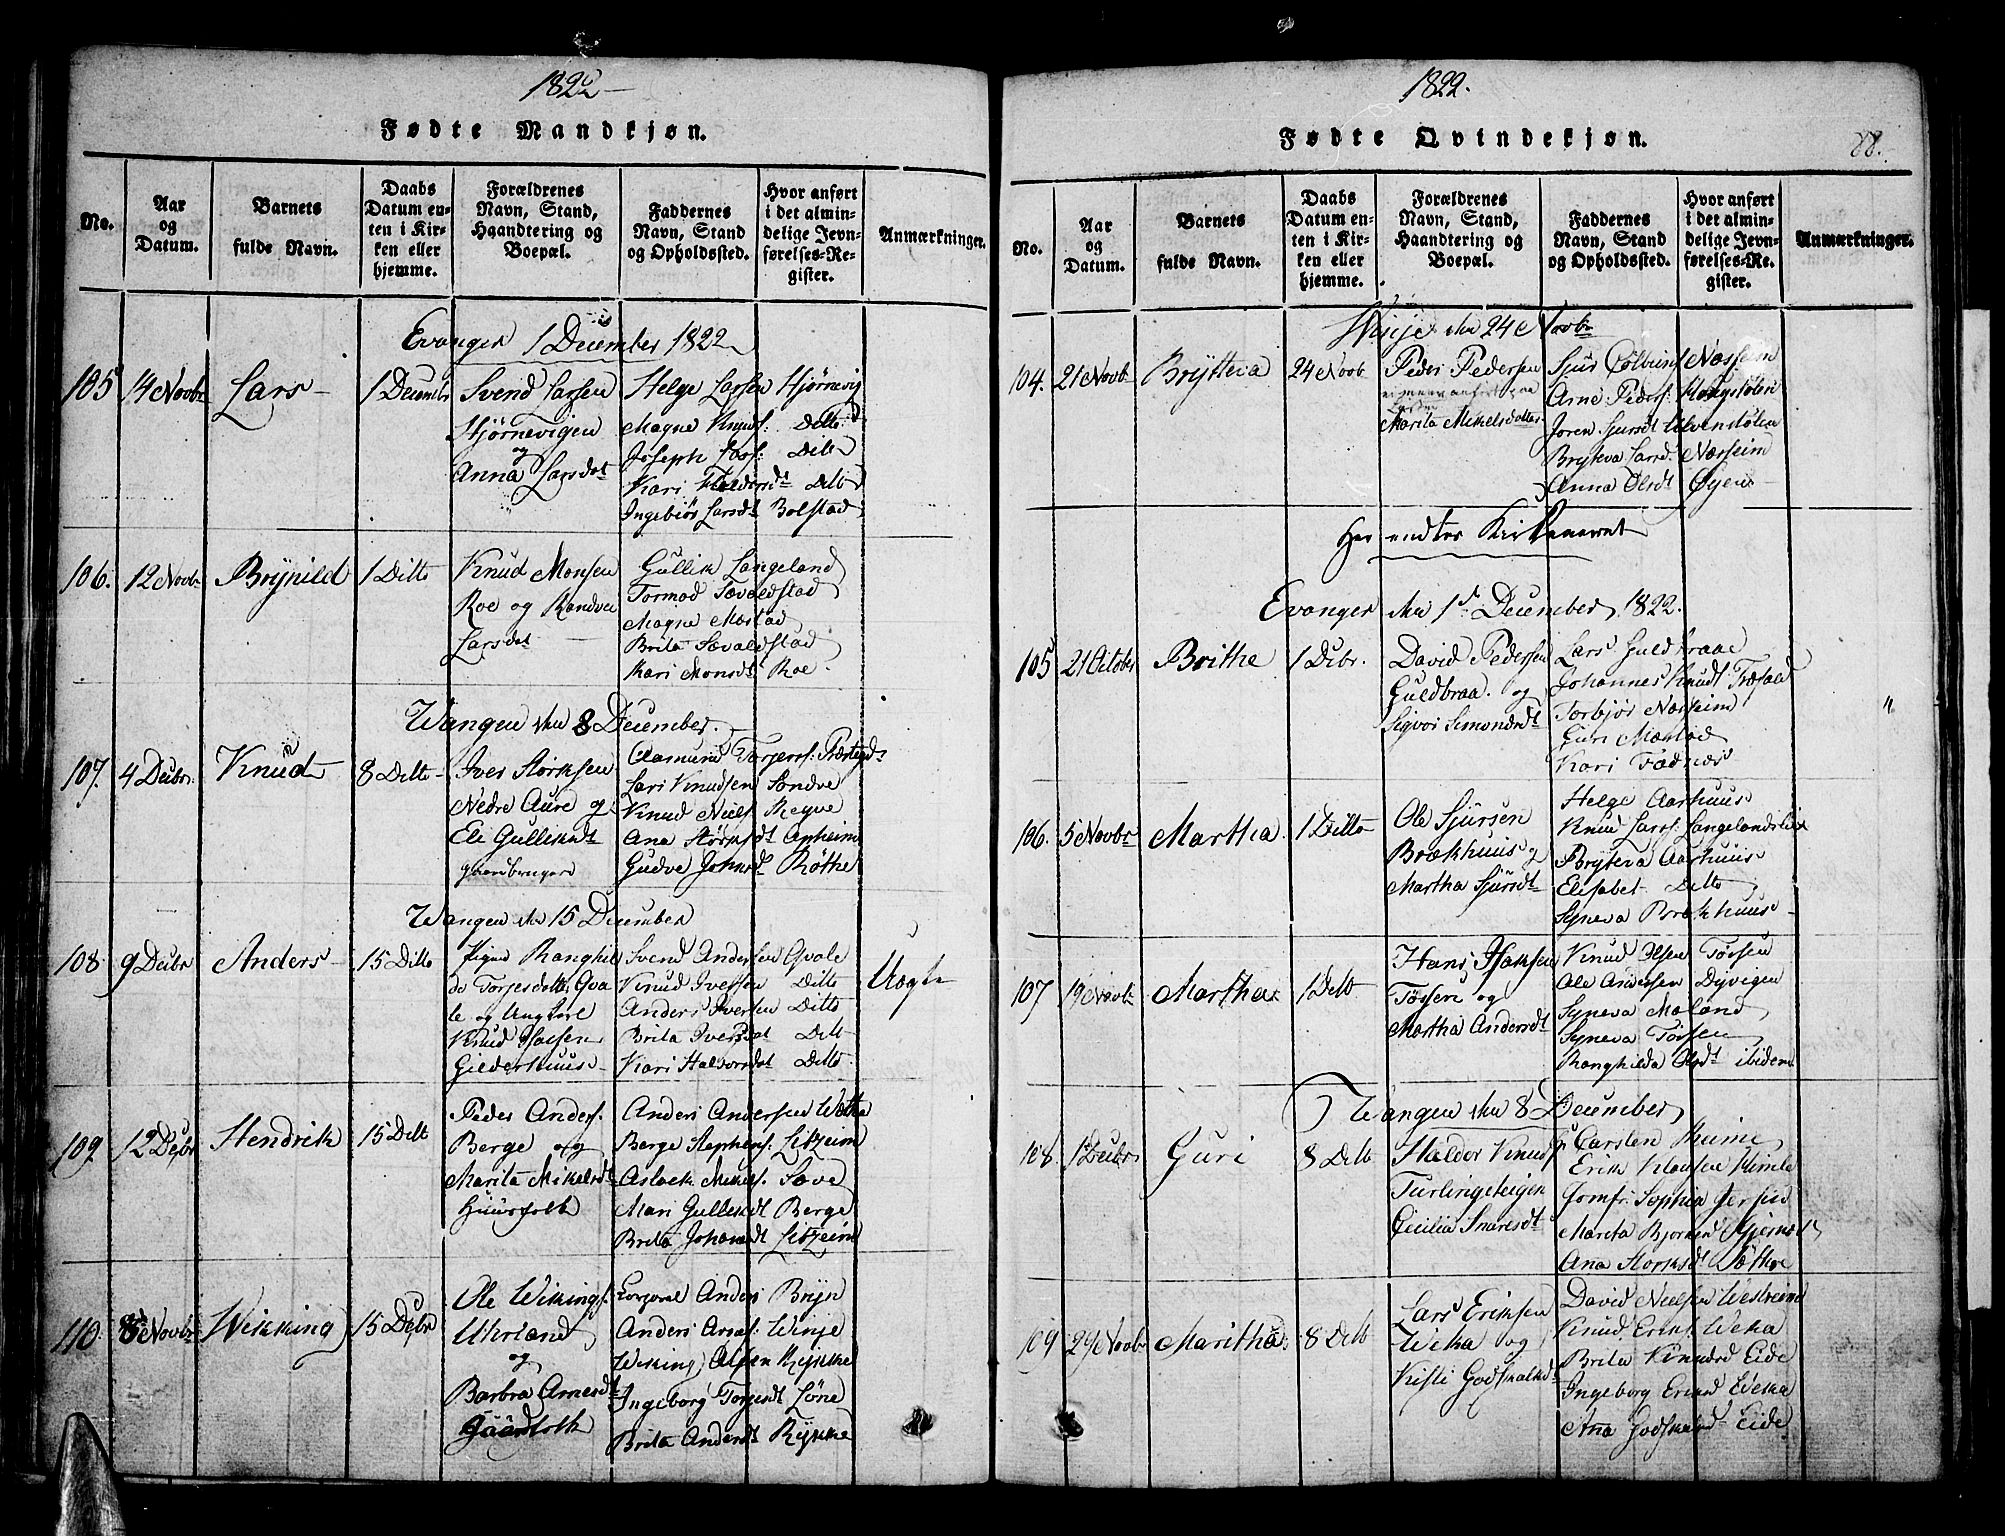 1822
Fødte Mandkjøn.
No.
Aar
og
Datum.
Barnets
fulde Navn.
Daabs
Datum en-
ten i Kir-
ken eller
hjemme.
Forældrenes
Navn, Stand,
Haandtering og
Boepæl.
Faddernes
Navn, Stand
og Opholdssted.
Hvor anført
i det almin-
delige Jevn-
førelses-Re-
gister.
Anmærkninger.
Evanger 1 December 1822
105
14 Novbr
Lars
1 Decembr
Svend Larsen
Hjørnevigen
og
Anna Larsdat
Helge Larsen Hjørnevig
Magne Knuds: Ditto
Joseph Jos: Ditto
Kari Haldorsdt Ditto
Ingebiør Larsdt Bolstad
106.
12 Novbr
Brynild
1 Ditto
Knud Monsen
Roe og Randvei
Larsdat
Gullik Langeland
Tormod
Magne Mæstad
Brita
Kari Monsdt Roe
Wangen den 8 December.
107.
4 Decbr
Knud
8 Ditto
Iver Størksen
Nedre Aure og
Eli Gulliksdt
Aamund Torjers:
Lars Knudsen Sondve
Knud Niels: Regve
Ana Størksdt Apheim
Gudve Johnsdt Røthe
Wangen den 15 December
108
9 Decbr
Anders
15 Ditto
Pigen Ranghil
da Torjesdatter Qva
le og Ungkarl
Knud
Gilderhuus
Svend Andersen Qvale
Knud Iversen Ditto
Anders Iversen Ditto
Brita Iversdat Ditto
Kari Halvorsdat Ditto
Uægte
109
12 Decbr
Hendrik
15 Ditto
Peder Anders:
Berge og
Marita Mikelsdt
Huusfolk
Anders Andersen
Berge Stephens: Litzeim
Aslack Mikels: Sove
Mari Gulleksdt Berge
Brita Johansdt Litzeim
110.
Novbr
Wikking
15 Decbr
Ole Wikings:
Uhrland
og
Barbra Arnesdt
Gaardfolk
Anders Bryn
Anders Winje
Wiking Olsen Rykke
Ingeborg Torjesdt Løne
Brita Andersdt Rykke
1822.
Fødte Qvindekjøn.
88.
No.
Aar
og
Datum.
Barnets
fulde Navn.
Daabs
Datum en-
ten i Kir-
ken eller
hjemme.
Forældrenes
Navn, Stand,
Haandtering og
Boepæl.
Faddernes
Navn, Stand
og Opholdssted.
Hvor anført
i det almin-
delige Jevn-
førelses-Re-
gister.
Anmærkninger.
Winje den 24 Novbr
104.
21 Novbr
Brytteva
24 Novb
Peder Pedersen
Marita Mikelsdatter
Sjur Næsheim
Arne Peders:
Joren Sjursdt
Bryteva Larsd: Næsheim
Anna Olsdt Øyen
Her endtes Kirkeaaret
Evanger den 1st December 1822.
105
21 October
Brithe
1 Decbr.
David Pedersen
Guldbraa. og
Sigvor Simonsdt
Lars Guldbraae
Johannes Knuds
Torbjør Næsheim
Guri Mæstad
Kari Fadnes
106.
5 Novbr
Martha
1 Ditto
Ole Sjursen
Brækhuus og
Martha Sjursdt
Helge Aarhuus
Knud Larss: Langelandslid
Brÿteva Aarhuus
Elisabet Ditto
Syneva Brækhuus
107
19 Novbr
Martha
1 Ditto
Hans Isaksen
Tøssen og
Martha Andersdt
Knud Olsen Tøssen
Ole Andersen Dyvigen
Syneva Moland
Syneva Tøssen
Ranghilda Olsdt ibidem
Wangen den 8 December
108.
1 Decbr
Guri
8 Ditto
Haldor Knuds:
Turlingsteigen
Cicilia Snaresdt
Carsten Rheime
Erik Klausen Rimla
Jomfr: Sophia
Marita
Ana Størksdt
109
29 Novbr
Maritha
8 Ditto
Lars Eriksen
Weka og
Kristi Godskalksdt
David Nielsen Westreim
Knud Eriks: Weka
Brita Knudsd Eide
Ingeborg Eriksd Weka
Ana Godskalksd Eide